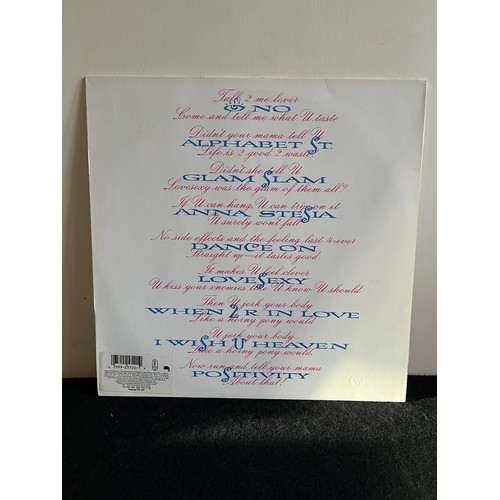 Talk 2 me lover
👁 NO
Come and tell me what U taste
Didn't your mama tell U
ALPHABET St.
Life is 2 good 2 waste
Didn't she tell U
GLAM SLAM
Lovesexy was the glam of them all?
If U can hang, U can trip on it
ANNA STESIA
U surely won't fall
No side effects and the feeling last 4-ever
DANCE ON
Straight up—it tastes good
It makes U feel clever
LOVESEXY
U kiss your enemies like U know U should
Then U jerk your body
WHEN 2 R IN LOVE
Like a horny pony would
U jerk your body
I WISH U HEAVEN
Like a horny pony would
Now run and tell your mama
POSITIVITY
About that!